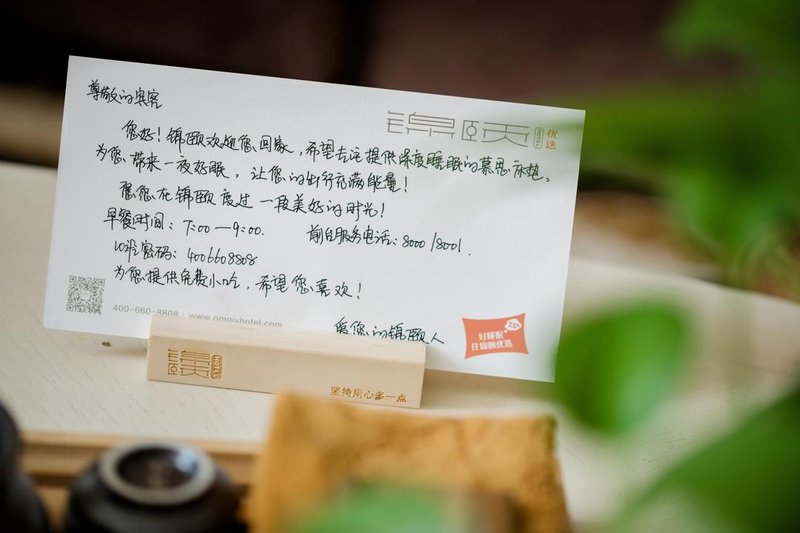 锦颐 优选
尊敬的宾客
您好！锦颐欢迎您回家，希望专注提供深度睡眠的慕思床垫，
为您带来一夜好眠，让您的出行充满能量！
愿您在锦颐度过一段美好的时光！
早餐时间：7:00—9:00. 前台服务电话：8000/8001.
WiFi密码：4006608808
为您提供免费小吃，希望您喜欢！
爱您的锦颐人
400-660-8808 | www.nmgjyhotel.com
好睡眠
住锦颐优选
锦颐
HOTEL
坚持用心多一点